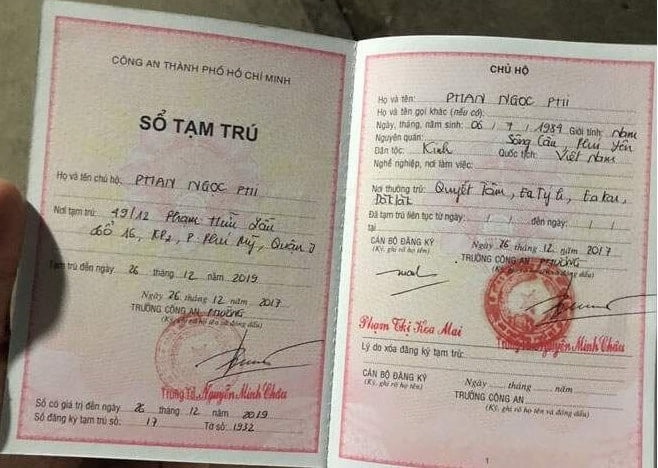 CÔNG AN THÀNH PHỐ HỒ CHÍ MINH
SỔ TẠM TRÚ
Họ và tên chủ hộ: PHAN NGỌC PHI
Nơi tạm trú: 49/12 Phạm Hữu Lầu
tổ 16, KP2, P. Phú Mỹ, Quận 7
Tạm trú đến ngày 26 tháng 12 năm 2019
Ngày 26 tháng 12 năm 2017
TRƯỞNG CÔNG AN PHƯỜNG
(Ký, ghi rõ họ tên và đóng dấu)
Trung Tá Nguyễn Minh Châu
Sổ có giá trị đến ngày 26 tháng 12 năm 2019
Số đăng ký tạm trú số: 17 Tờ số: 1932
CHỦ HỘ
Họ và tên: PHAN NGỌC PHI
Họ và tên gọi khác (nếu có):
Ngày, tháng, năm sinh: 06 / 7 / 1989 Giới tính: Nam
Nguyên quán: Sông Cầu, Phú Yên
Dân tộc: Kinh Quốc tịch: Việt Nam
Nghề nghiệp, nơi làm việc:
Nơi thường trú: Quyết Tâm, Ea Tý h, Ea Kar,
Đắk Lắk
Đã tạm trú liên tục từ ngày: / / đến ngày: / /
tại
CÁN BỘ ĐĂNG KÝ
(Ký, ghi rõ họ tên)
Ngày 26 tháng 12 năm 2017
TRƯỞNG CÔNG AN PHƯỜNG
(Ký, ghi rõ họ tên và đóng dấu)
Phạm Thị Hoa Mai
Nguyễn Minh Châu
Lý do xóa đăng ký tạm trú:
CÁN BỘ ĐĂNG KÝ
(Ký, ghi rõ họ tên)
Ngày tháng năm
TRƯỞNG CÔNG AN
(Ký, ghi rõ họ tên và đóng dấu)
1